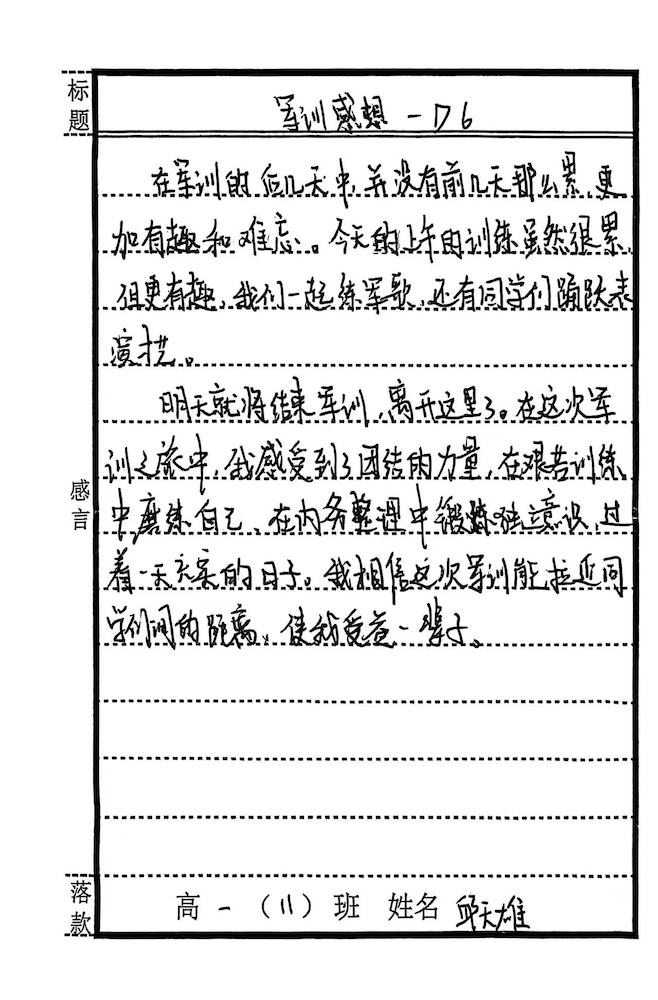 标题
军训感想 - D6
在军训的后几天中,并没有前几天那么累,更
加有趣和难忘。今天的上午的训练虽然很累,
但更有趣,我们一起练军歌,还有同学们踊跃表
演才艺。
明天就将结束军训,离开这里了。在这次军
训之旅中,我感受到了团结的力量,在艰苦训练
中磨练自己、在内务整理中锻炼独立意识,过
着一天天充实的日子。我相信这次军训能拉近同
学们间的距离、使我受益一辈子。
感言
落款
高一(11)班 姓名 邱天雄